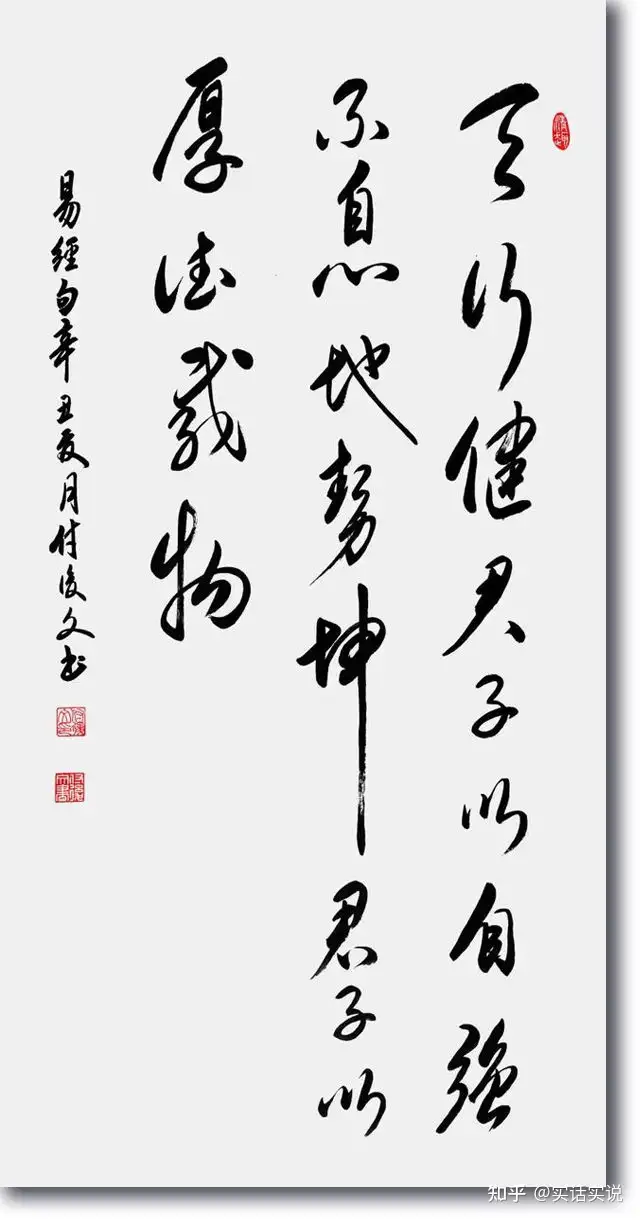 天行健君子以自強
不息地勢坤君子以
厚德載物
易經句辛丑夏月付俊文书
知乎 @实话实说